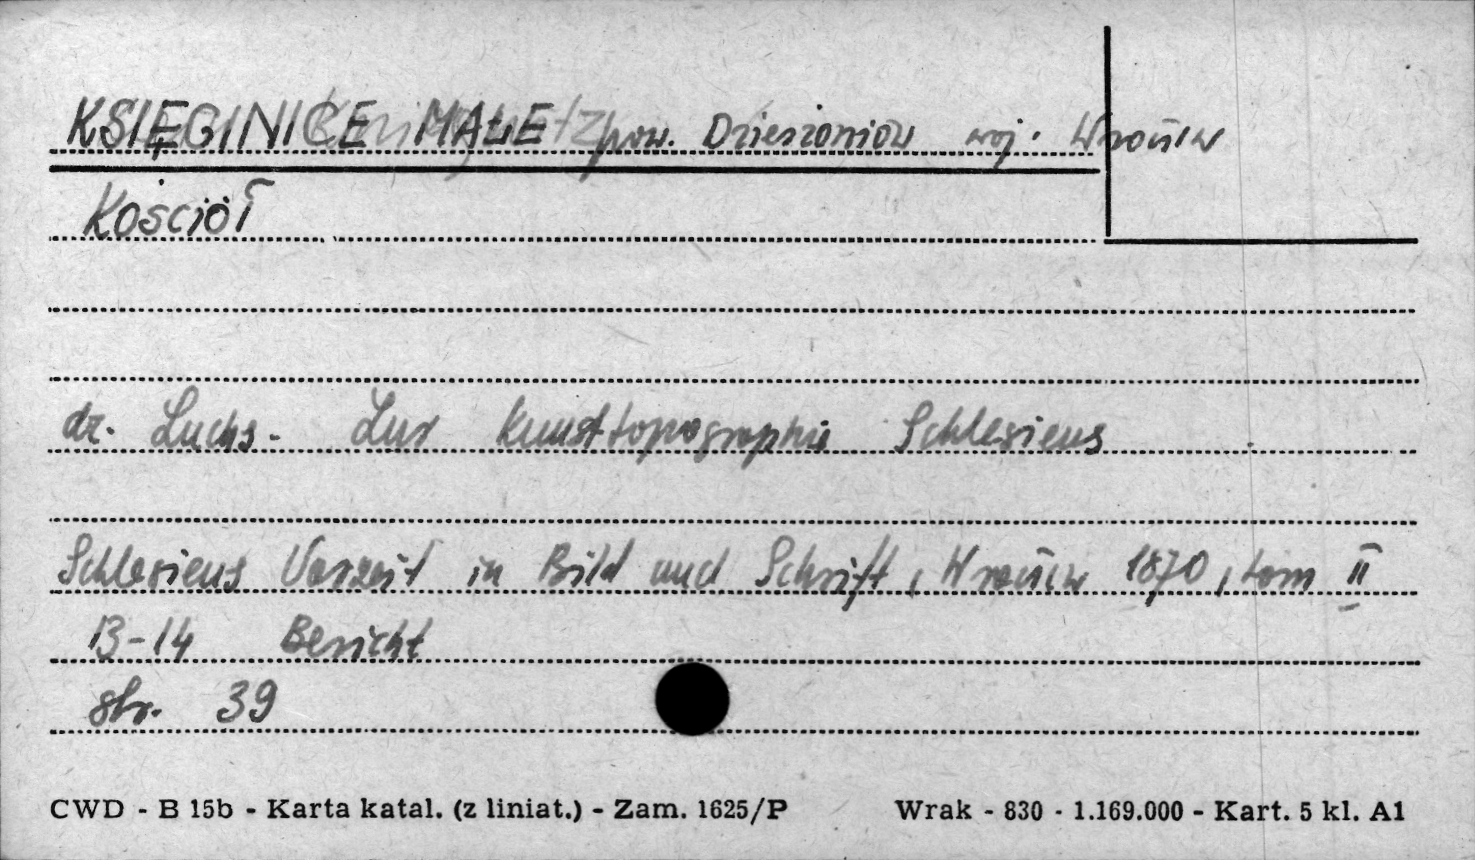 KSIĘGINICE MAŁE pow. Dzierżoniów woj. Wrocław
Kościół
dr. Luchs - Zur Kunsttopographie Schlesiens
Schlesiens Vorzeit in Bild und Schrift, Wrocław 1870, tom II
13-14 Bericht
str. 39
CWD - B 15b - Karta katal. (z liniat.) - Zam. 1625/P Wrak - 830 - 1.169.000 - Kart. 5 kl. A1